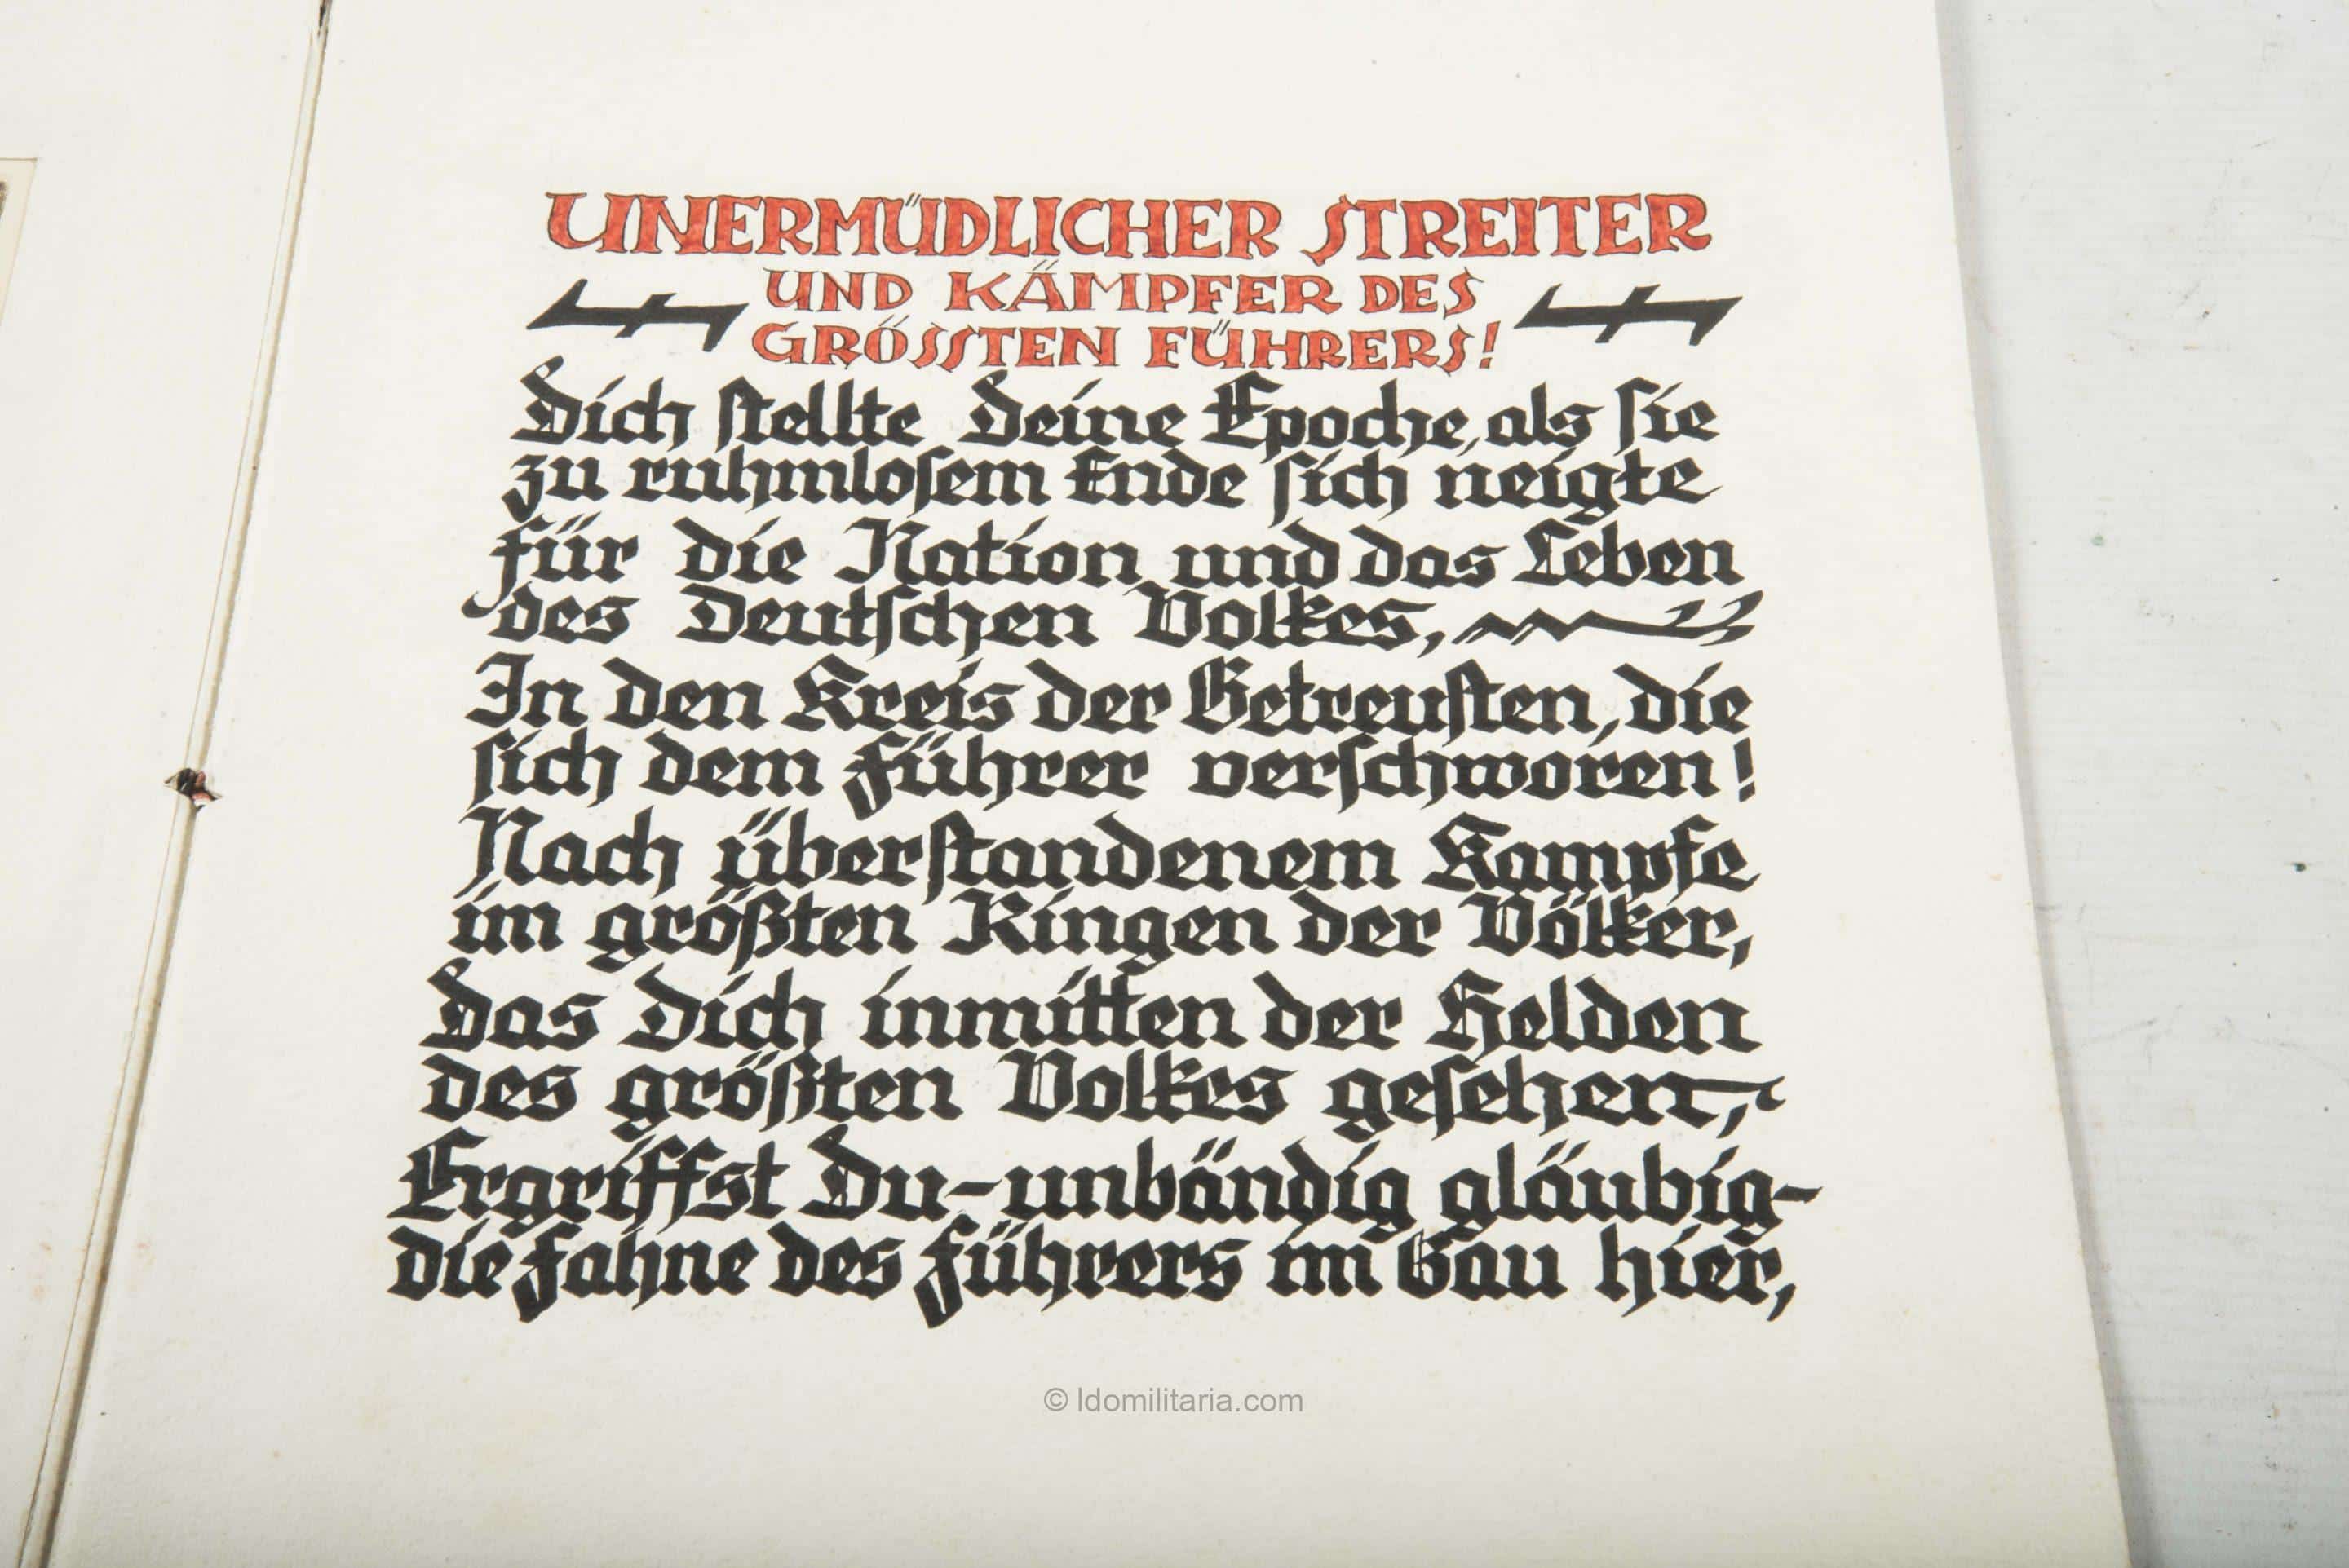 UNERMÜDLICHER STREITER
UND KÄMPFER DES
GRÖSSTEN FÜHRERS!
Dich stellte Deine Epoche, als sie
zu ruhmlosem Ende sich neigte
für die Nation und das Leben
des Deutschen Volkes,
In den Kreis der Getreusten, die
sich dem Führer verschworen!
Nach überstandenem Kampfe
im größten Ringen der Völker,
Das Dich inmitten der Helden
des größten Volkes gesehen,
Ergriffst Du-unbändig gläubig-
die Fahne des Führers im Gau hier,
© ldomilitaria.com